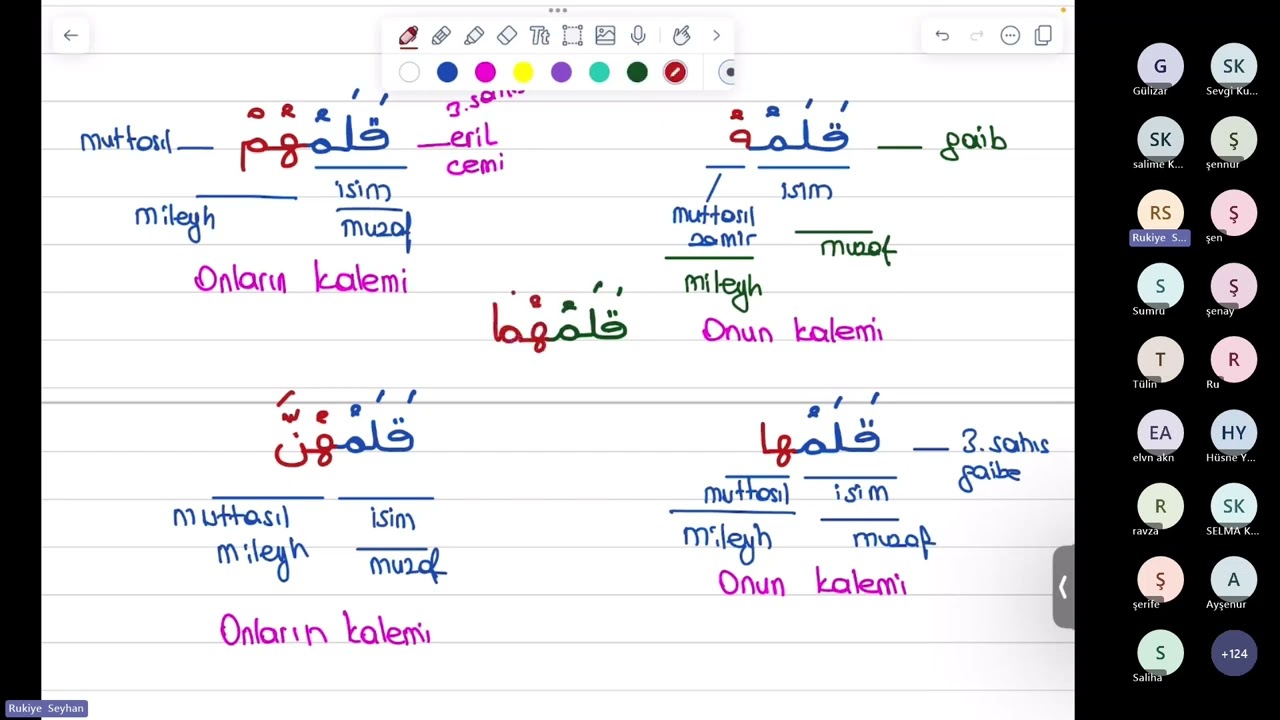 3. sahıs
muttosıl — قَلَمُهُمْ — eril
cemi
isim
muzaf
mileyh
Onların kalemi
قَلَمُهُ — gaib
isim
muttosıl
zamir
muzaf
mileyh
Onun kalemi
قَلَمُهُمَا
قَلَمُهُنَّ
muttasıl
isim
mileyh
muzaf
Onların kalemi
قَلَمُها — 3. sahıs
gaibe
muttosıl
isim
mileyh
muzaf
Onun kalemi
Tt
G
Gülizar
SK
Sevgi Ku...
SK
salime K...
Ş
şennur
RS
Rukiye S...
Ş
şen
S
Sumru
Ş
şenay
T
Tülin
R
Ru
EA
elvn akn
HY
Hüsne Y...
R
ravza
SK
SELMA K...
Ş
şerife
A
Ayşenur
S
Saliha
+124
Rukiye Seyhan